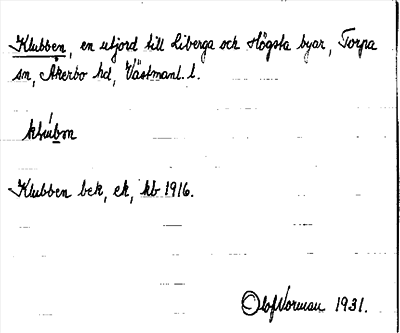 Klubben, en utjord till Liberga och Högsta byar, Torpa
sn, Åkerbo hd, Västmanl. l.
Klubben bek, ek, kb 1916.
Olof Norman 1931.